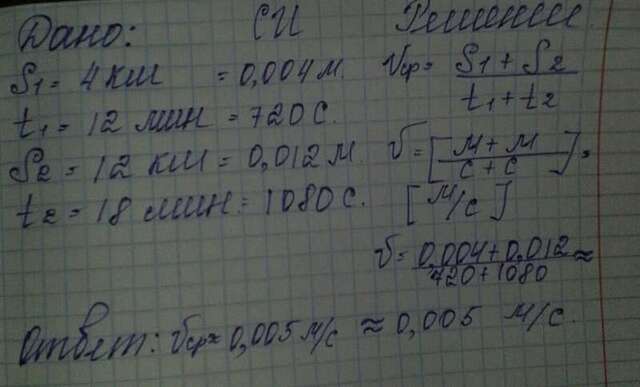 Дано: СИ Решение
S1 = 4 км = 0,004 м. Vср = S1 + S2 / t1 + t2
t1 = 12 мин = 720 с.
S2 = 12 км = 0,012 м V = [м + м / с + с] =
t2 = 18 мин = 1080 с. [м/с]
V = 0,004 + 0,012 / 720 + 1080 ≈
Ответ: Vср ≈ 0,005 м/с ≈ 0,005 м/с.